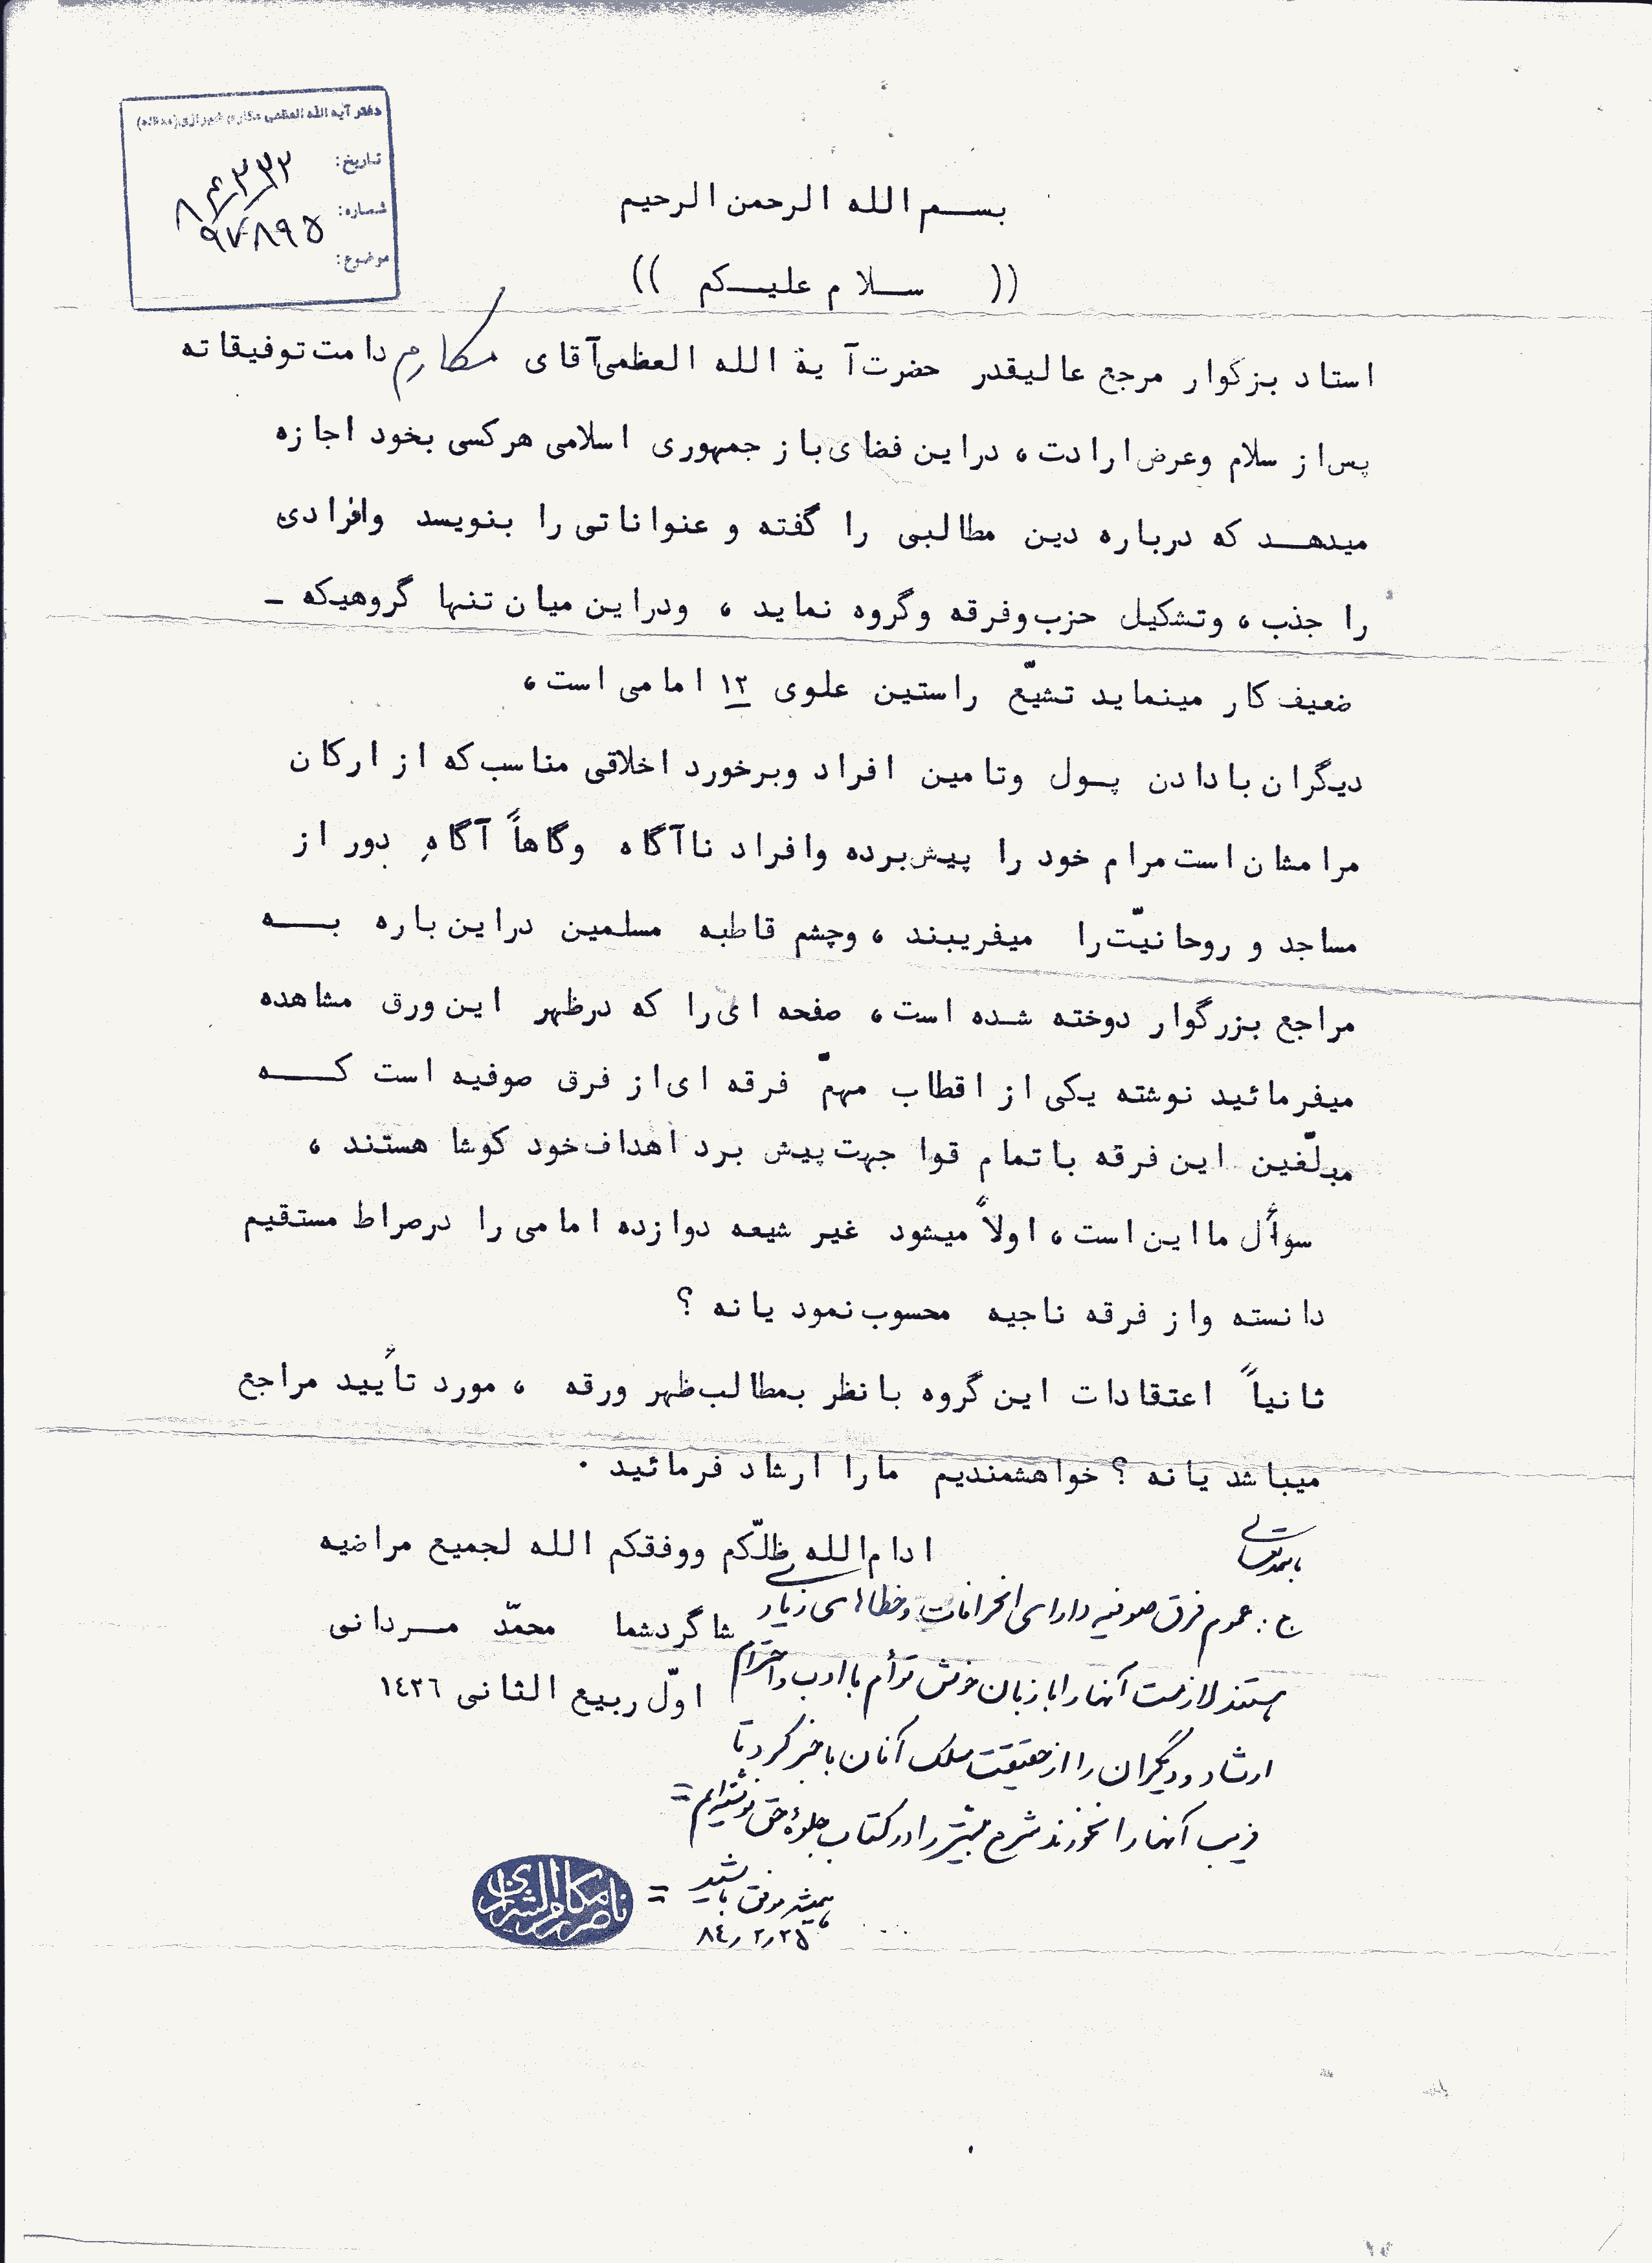 دفتر آیة الله العظمی مکارم شیرازی (مدظله)
تاریخ:
شماره: ۹۷۸۹۵
موضوع:
بسم الله الرحمن الرحیم
(( سلام علیکم ))
استاد بزگوار مرجع عالیقدر حضرت آیة الله العظمی آقای مکارم دامت توفیقاته
پس از سلام وعرض ارادت، در این فضای باز جمهوری اسلامی هرکسی بخود اجازه
میدهد که درباره دین مطالبی را گفته و عنواناتی را بنویسد وافرادی
را جذب، وتشکیل حزب وفرقه وگروه نماید، ودراین میان تنها گروهیکه -
ضعیف کار مینماید تشیّع راستین علوی ۱۲ امامی است،
دیگران بادادن پول وتامین افراد وبرخورد اخلاقی مناسب که از ارکان
مرامشان است مرام خود را پیش برده وافراد ناآگاه وگاهاً آگاه دور از
مساجد و روحانیّت را میفریبند، وچشم قاطبه مسلمین دراین باره به
مراجع بزرگوار دوخته شده است، صفحه ای را که درظهر این ورق مشاهده
میفرمائید نوشته یکی از اقطاب مهمّ فرقه ای از فرق صوفیه است که
مبلّغین این فرقه باتمام قوا جهت پیش برد اهداف خود کوشا هستند،
سوأل ما این است، اولاً میشود غیر شیعه دوازده امامی را درصراط مستقیم
دانسته واز فرقه ناجیه محسوب نمود یا نه ؟
ثانیاً اعتقادات این گروه با نظر بمطالب ظهر ورقه ، مورد تأیید مراجع
میباشد یا نه ؟ خواهشمندیم مارا ارشاد فرمائید .
ادام الله ظلّکم ووفقکم الله لجمیع مراضیه
شاگرد شما محمّد مردانی
اوّل ربیع الثانی ١٤٢٦
باسمه تعالی
ج: عموم فرق صوفیه دارای انحرافات و خطاهای زیادی
هستند لازمست آنها را با زبان خوش توأم با ادب و احترام
ارشاد و دیگران را از حقیقت مسلک آنان با خبر کرد تا
فریب آنها را نخورند شرح بیشتر را در کتاب جلوۀ حق نوشته‌ایم =
همیشه موفق باشید =
۸٤٫۲٫۲۵
ناصر مکارم الشیرازی